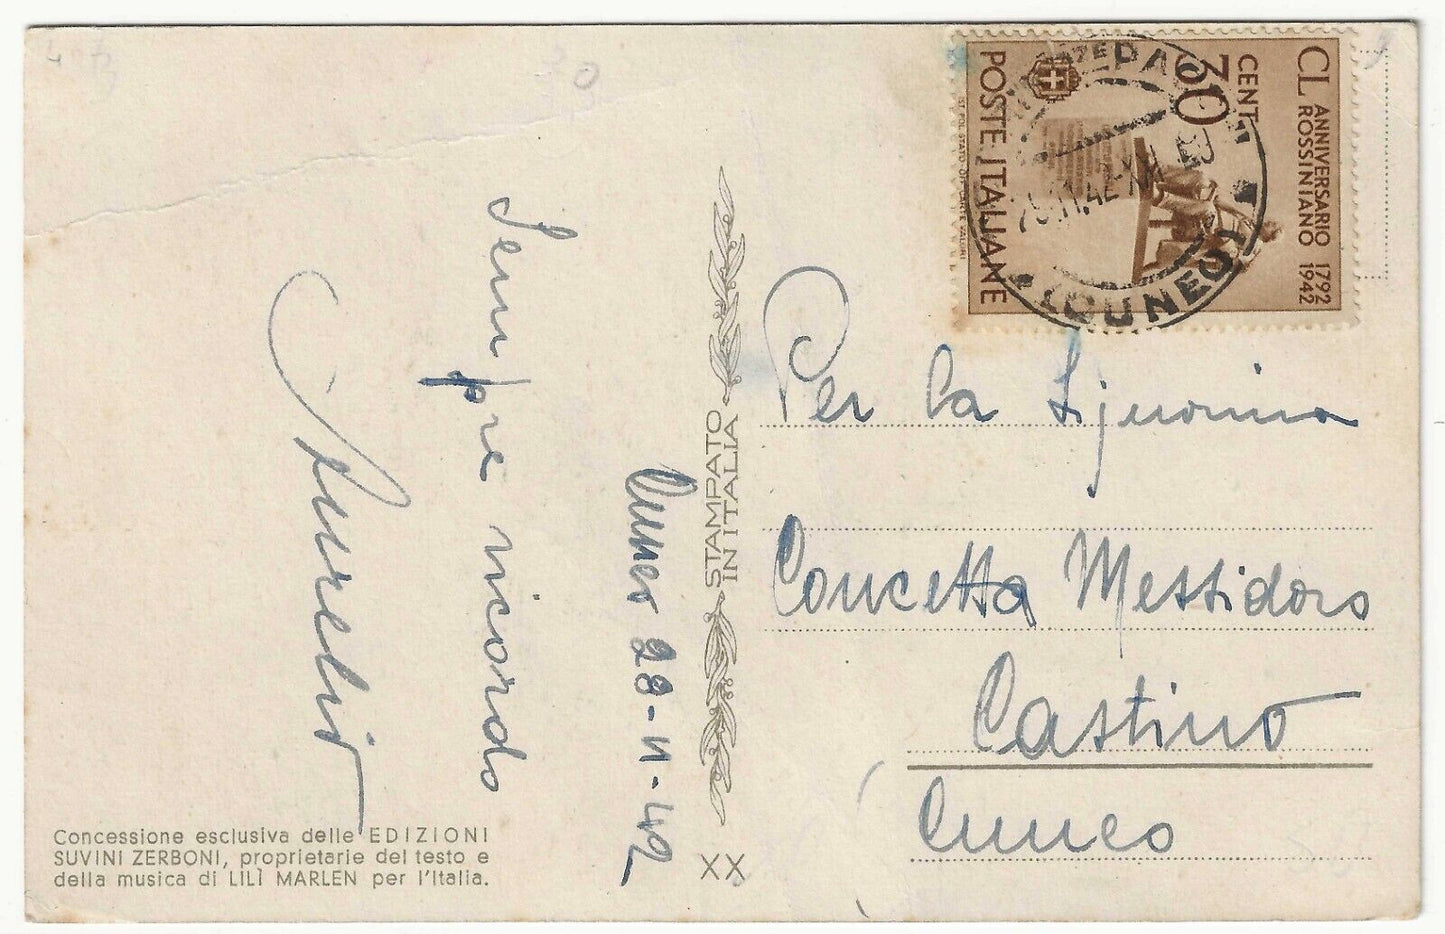 Sempre ricordo
Aurelio
Cuneo 28-11-42
Concessione esclusiva delle EDIZIONI
SUVINI ZERBONI, proprietarie del testo e
della musica di LILÌ MARLEN per l'Italia.
STAMPATO
IN ITALIA
XX
CL ANNIVERSARIO 1792
ROSSINIANO 1942
CENT 30
POSTE ITALIANE
IST. POL. STATO OFF. CARTE VALORI
(CUNEO)
Per la Sijnorina
Concetta Messidoro
Castino
Cuneo